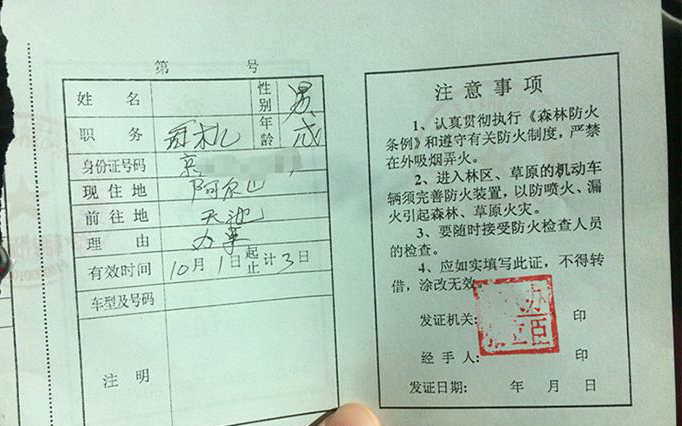 第 号
姓名 性别 男
职务 司机 年龄 成
身份证号码 京
现住地 阿尔山
前往地 天池
理由 办事
有效时间 10月1日起止计3日
车型及号码
注明
注意事项
1、认真贯彻执行《森林防火
条例》和遵守有关防火制度，严禁
在外吸烟弄火。
2、进入林区、草原的机动车
辆须完善防火装置，以防喷火、漏
火引起森林、草原火灾。
3、要随时接受防火检查人员
的检查。
4、应如实填写此证，不得转
借，涂改无效。
发证机关： 印
经手人： 印
发证日期： 年 月 日